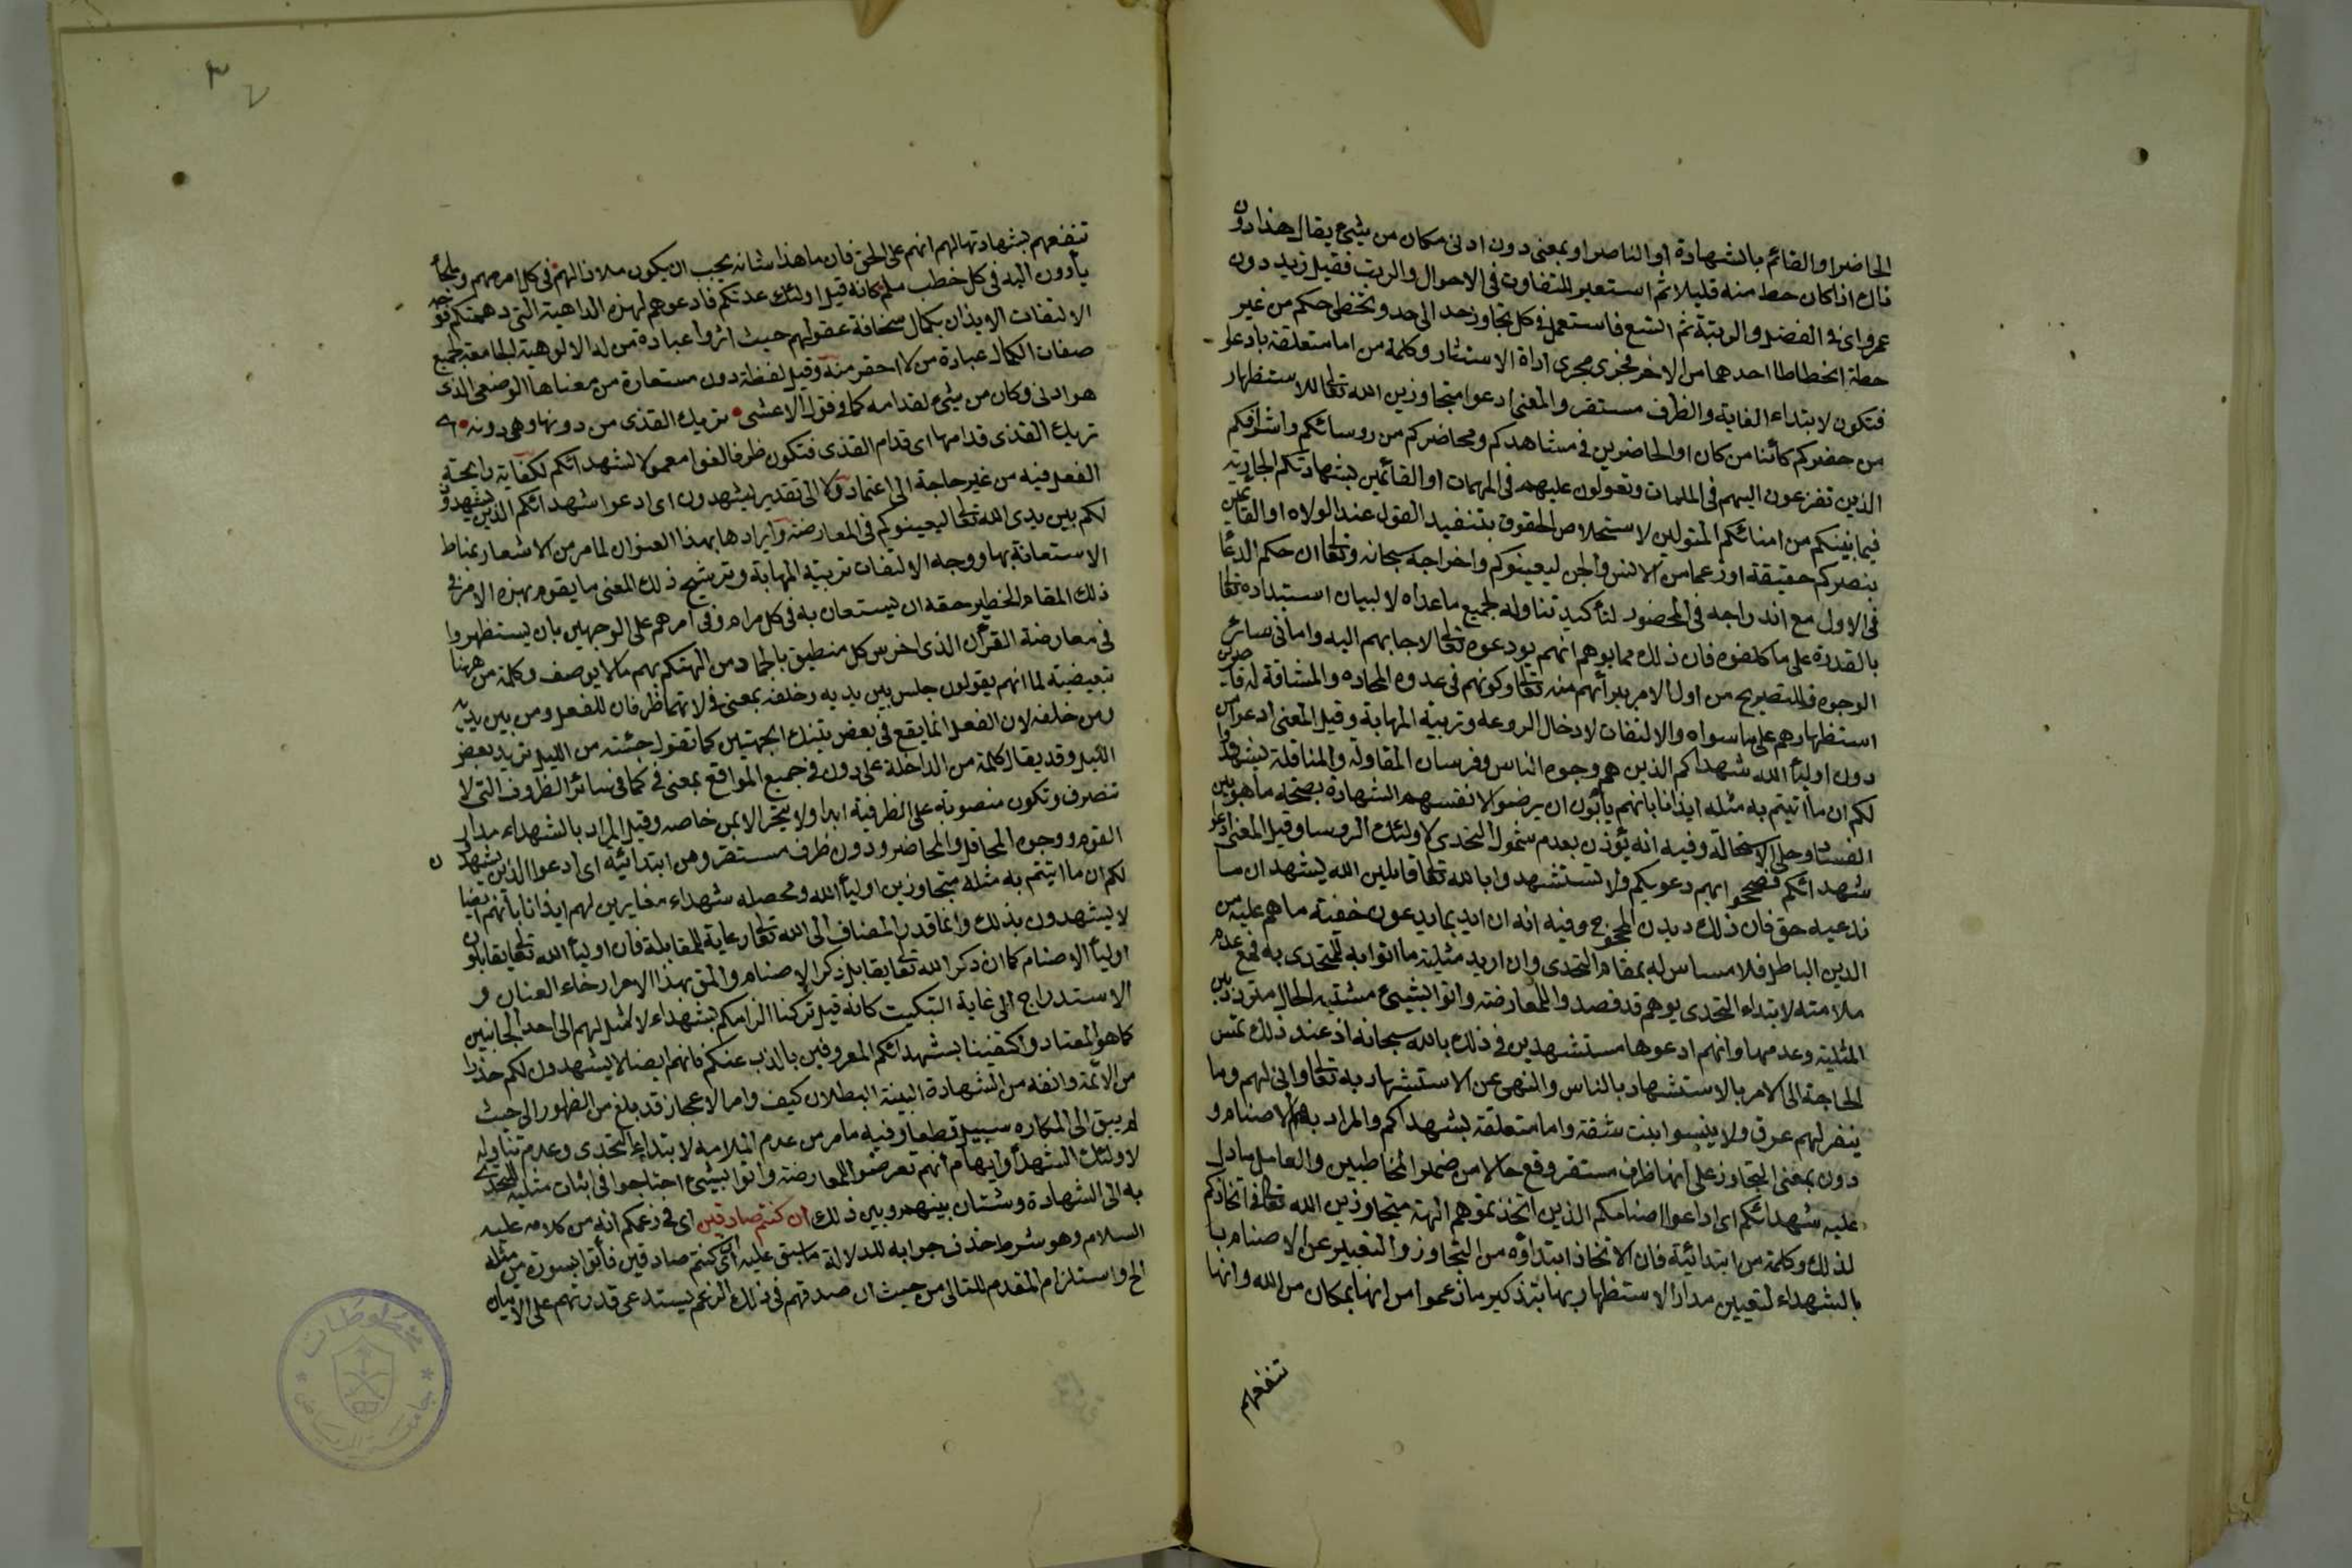 الحاضر او القائم بالشهادة او الناصر او بمعنى دون ادنى مكان من شيء يقال هذا دون
ذاك اذا كان حط منه قليلا ثم استعير للتفاوت فى الاحوال والرتب فقيل زيد دون
عمرو اى فى الفضل والرتبة ثم اتسع فاستعمل فى كل تجاوز حد الى حد وتخطى حكم من غير
حطة انحطاط احدهما من الاخر فجرى مجرى اداة الاستثناء وكلمة من اما متعلقة بادعوا
فتكون لابتداء الغاية والظرف مستقر والمعنى ادعوا متجاوزين الله تعالى للاستظهار
من حضركم كائنا من كان او الحاضرين فى مشاهدكم ومحاضركم من روسائكم واشرافكم
الذين تفزعون اليهم فى الملمات وتعولون عليهم فى المهمات او القائمين بشهادتكم الجارية
فيما بينكم من امنائكم المتولين لاستخلاص الحقوق بتنفيذ القول عند الولاه او القائمين
بنصركم حقيقة او زعما من الانس والجن ليعينوكم واخراجه سبحانه وتعالى من حكم الدعا
فى الاول مع اندراجه فى الحضور لتأكيد تناوله لجميع ما عداه لا لبيان استبداده تعالى
بالقدرة على ما كلفوه فان ذلك مما يوهم انهم لو دعوه تعالى لاجابهم اليه واما فى سائر
الوجوه فللتصريح من اول الامر ببرأتهم منه تعالى وكونهم فى عدوة المحاده والمشاقة له قاصرين
استظهارهم على ما سواه والالتفات لادخال الروعه وتربية المهابة وقيل المعنى ادعوا من
دون اوليأ الله شهداكم الذين هم وجوه الناس وفرسان المقاولة والمناقلة ليشهدوا
لكم ان ما اتيتم به مثله ايذانا بانهم يأبون ان يرضوا لانفسهم الشهادة بصحة ما هو بين
الفساد وجلى الاستحالة وفيه انه يؤذن بعدم شمول التحدى لاولئك الروسا وقيل المعنى ادعوا
شهدائكم فصححوا بهم دعويكم ولا تستشهدوا بالله تعالى قائلين الله يشهد ان ما
ندعيه حق فان ذلك ديدن المحجوج وفيه انه ان اريد بما يدعون حقية ما هم عليه من
الدين الباطل فلا مساس له بمقام التحدى وان اريد مثلية ما اتوا به للمتحدى به فمع عدم
ملامته لابتداء التحدى يوهم قد قصدوا للمعارضة واتوا بشيء مشتبه الحال متردد بين
المثلية وعدمها وانهم ادعوها مستشهدين فى ذلك بالله سبحانه اذ عند ذلك تمس
الحاجة الى الامر بالاستشهاد بالناس والنهى عن الاستشهاد به تعالى وانى لهم وما
ينفر لهم عرق ولا ينبسوا ببنت شفة واما متعلقة بشهداكم والمراد بهم الاصنام و
دون بمعنى التجاوز على انها ظرف مستقر وقع حالا من ضمير المخاطبين والعامل ما دل
عليه شهدائكم اى ادعوا اصنامكم الذين اتخذتموهم الهة متجاوزين الله تعالى فى اتخاذكم
لذلك وكلمة من ابتدائية فان الاتخاذ ابتداؤه من التجاوز والتعبير عن الاصنام با
بالشهداء لتعيين مدار الاستظهار بها بتذكير ما زعموا من انها بمكان من الله وانها
تنفعهم
تنفعهم بشهادتها لهم انهم على الحق فان ما هذا شانه يجب ان يكون ملاذا لهم فى كل امر مهم وملجأ
يأوون اليه فى كل خطب ملم كانه قيل اولئك عدتكم فادعوهم لهذه الداهية التى دهمتكم فوجه
الالتفات الايذان بكمال سخافة عقولهم حيث اثروا عبادة من له الالوهية الجامعة لجميع
صفات الكمال عبادة من لا احقر منه وقيل لفظة دون مستعارة من معناها الوضعى الذى
هو ادنى مكان من شيء لقدامه كما فى قول الاعشى تريك القذى من دونها وهى دونه اى
تريك القذى قدامها اى قدام القذى فتكون ظرفا لغوا معمولا لشهدائكم لكفاية رايحة
الفعل فيه من غير حاجة الى اعتماد ولا الى تقدير ليشهدون اى ادعوا شهدائكم الذين يشهدون
لكم بين يدى الله تعالى ليعينوكم فى المعارضة وايرادها بهذا العنوان لما مر من الاشعار بمناط
الاستعانة بها ووجه الالتفات تربية المهابة وترشيح ذلك المعنى ما يقوم بهذه الامر فى
ذلك المقام الخطير حقه ان يستعان به فى كل مرام وفى امرهم على الوجهين بان يستظهروا
فى معارضة القرآن الذى اخرس كل منطيق بالجماد من التهكم بهم ما لا يوصف وكلمة من ههنا
تبعيضية لما انهم يقولون جلس بين يديه وخلفه بمعنى فى لانهما ظرفان للفعل ومن بين يديه
ومن خلفه لان الفعل انما يقع فى بعض تينك الجهتين كما تقول جئته من الليل تريد بعض
الليل وقد يقال كلمة من الداخلة على دون فى جميع المواقع بمعنى فى كما فى سائر الظروف التى لا
تنصرف وتكون منصوبة على الظرفية ابدا ولا ينجر الا بمن خاصه وقيل المراد بالشهداء مداره
القوم ووجوه المحافل والمحاضر ودون ظرف مستقر ومن ابتدائية اى ادعوا الذين يشهدون
لكم ان ما اتيتم به مثله متجاوزين اوليأ الله ومحصله شهداء مغايرين لهم ايذانا بانهم ايضا
لا يشهدون بذلك وانما قدر المضاف الى الله تعالى رعاية للمقابلة فان اوليأ الله تعالى يقابلون
اوليأ الاصنام كما ان ذكر الله تعالى يقابل ذكر الاصنام والمق بهذا الامر ارخاء العنان و
الاستدراج الى غاية التبكيت كانه قيل تركنا الزامكم بشهداء لا ميل لهم الى احد الجانبين
كما هو المعتاد واكتفينا بشهدائكم المعروفين بالذب عنكم فانهم ايضا لا يشهدون لكم حذرا
من الائمة وانفه من الشهادة البينة البطلان كيف وامر الاعجاز قد بلغ من الظهور الى حيث
لم يبق الى المكابره سبيل قطعا وفيه ما مر من عدم الملامه لابتداء التحدى وعدم تناوله
لاولئك الشهدأ وايهام انهم تعرضوا للمعارضة واتوا بشيء احتاجوا فى اثبات مثليه للمتحدى
به الى الشهادة وشتان بينهم وبين ذلك ان كنتم صادقين اى فى زعمكم انه من كلامه عليه
السلام وهو شرط حذف جوابه لدلالة ما سبق عليه اى ان كنتم صادقين فأتوا بسورة من مثله
الخ واستلزام المقدم للتالى من حيث ان صدقهم فى ذلك الزعم يستدعى قدرتهم على الاتيان
مخطوطات
جامعة الرياض